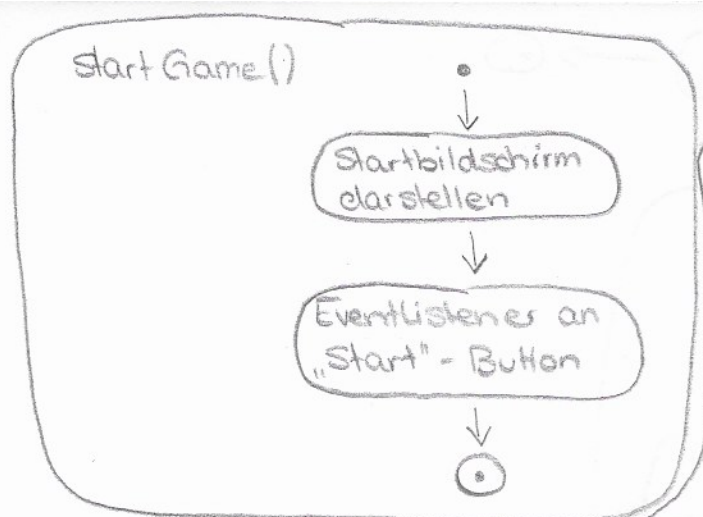 startGame()
Startbildschirm
darstellen
EventListener an
„Start" - Button